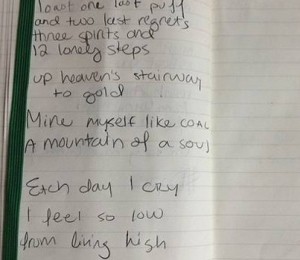 toast one last puff
and two last regrets
three spirits and
12 lonely steps
up heaven's stairway
to gold
Mine myself like coal
A mountain of a soul
Each day I cry
I feel so low
from living high